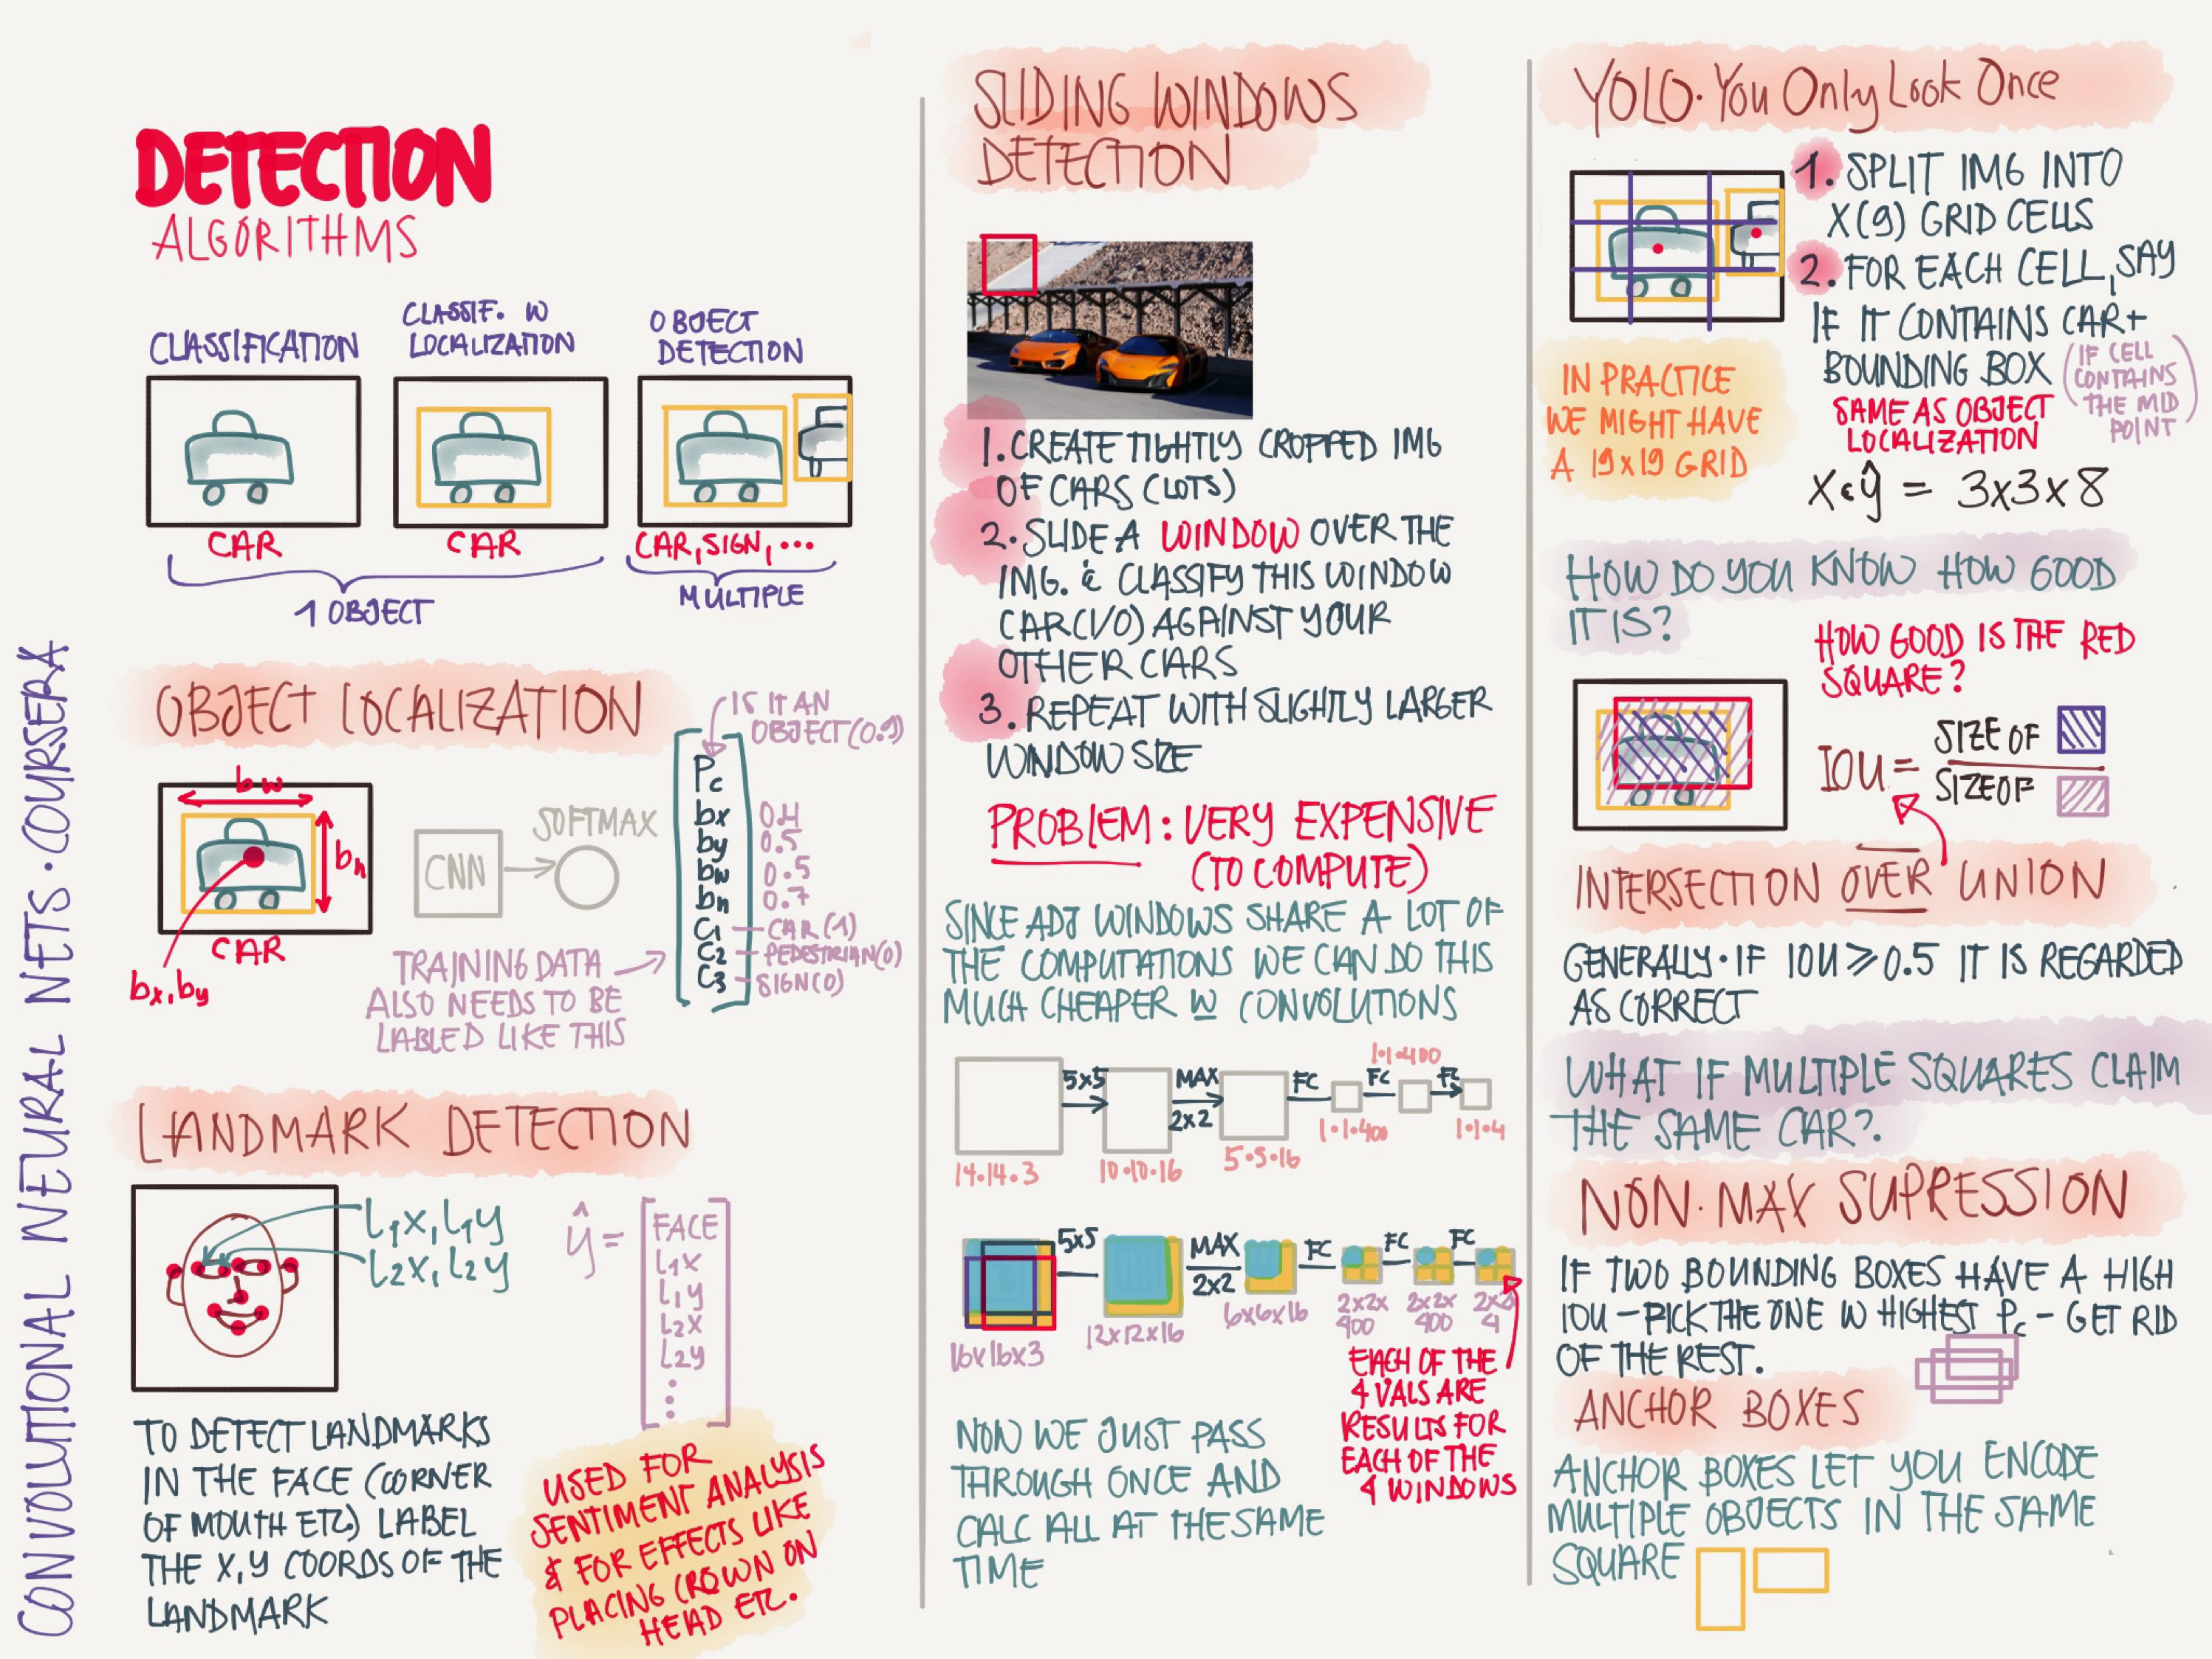 CONVOLUTIONAL NEURAL NETS · COURSERA
DETECTION
ALGORITHMS
CLASSIFICATION
CLASSIF. W
LOCALIZATION
OBJECT
DETECTION
CAR
CAR
CAR, SIGN, ...
1 OBJECT
MULTIPLE
OBJECT LOCALIZATION
bw
bh
CAR
bx, by
CNN
SOFTMAX
IS IT AN
OBJECT (0.9)
Pc
bx 0.4
by 0.5
bw 0.5
bh 0.7
C1 - CAR (1)
C2 - PEDESTRIAN (0)
C3 - SIGN (0)
TRAINING DATA
ALSO NEEDS TO BE
LABLED LIKE THIS
LANDMARK DETECTION
L1X, L1Y
L2X, L2Y
ŷ =
FACE
L1X
L1Y
L2X
L2Y
⋮
TO DETECT LANDMARKS
IN THE FACE (CORNER
OF MOUTH ETC) LABEL
THE X,Y COORDS OF THE
LANDMARK
USED FOR
SENTIMENT ANALYSIS
& FOR EFFECTS LIKE
PLACING CROWN ON
HEAD ETC.
SLIDING WINDOWS
DETECTION
1. CREATE TIGHTLY CROPPED IMG
OF CARS (LOTS)
2. SLIDE A WINDOW OVER THE
IMG. & CLASSIFY THIS WINDOW
CAR (1/0) AGAINST YOUR
OTHER CARS
3. REPEAT WITH SLIGHTLY LARGER
WINDOW SIZE
PROBLEM: VERY EXPENSIVE
(TO COMPUTE)
SINCE ADJ WINDOWS SHARE A LOT OF
THE COMPUTATIONS WE CAN DO THIS
MUCH CHEAPER W CONVOLUTIONS
5x5
MAX
2x2
FC
FC
FC
1·1·400
14·14·3
10·10·16
5·5·16
1·1·400
1·1·4
5x5
MAX
2x2
FC
FC
FC
16x16x3
12x12x16
6x6x16
2x2x
400
2x2x
400
2x2
4
EACH OF THE
4 VALS ARE
RESULTS FOR
EACH OF THE
4 WINDOWS
NOW WE JUST PASS
THROUGH ONCE AND
CALC ALL AT THE SAME
TIME
YOLO · You Only Look Once
1. SPLIT IMG INTO
X(9) GRID CELLS
2. FOR EACH CELL, SAY
IF IT CONTAINS CAR +
BOUNDING BOX
(IF CELL
CONTAINS
THE MID
POINT)
SAME AS OBJECT
LOCALIZATION
IN PRACTICE
WE MIGHT HAVE
A 19x19 GRID
X & ŷ = 3x3x8
HOW DO YOU KNOW HOW GOOD
IT IS?
HOW GOOD IS THE RED
SQUARE?
IOU =
SIZE OF
SIZE OF
INTERSECTION OVER UNION
GENERALLY · IF IOU ≥ 0.5 IT IS REGARDED
AS CORRECT
WHAT IF MULTIPLE SQUARES CLAIM
THE SAME CAR?.
NON · MAX SUPRESSION
IF TWO BOUNDING BOXES HAVE A HIGH
IOU – PICK THE ONE W HIGHEST Pc – GET RID
OF THE REST.
ANCHOR BOXES
ANCHOR BOXES LET YOU ENCODE
MULTIPLE OBJECTS IN THE SAME
SQUARE